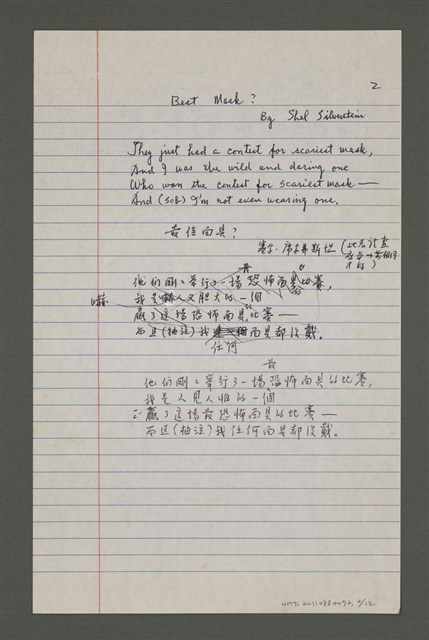 2
Best Mask?
By Shel Silverstein
They just had a contest for scariest mask,
And I was the wild and daring one
Who won the contest for scariest mask—
And (sob) I'm not even wearing one.
最佳面具?
席尔弗斯坦
最
他们刚刚举行了一場恐怖面具比賽,
我是 人又胆大的一個
贏了這場恐怖面具比賽—
而且(抽泣)我 面具都沒戴。
任何
最
他們剛剛舉行了一場恐怖面具的比賽,
我是人見人 的一個
贏了這場最恐怖面具的比賽—
而且(抽泣)我任何面具都沒戴。